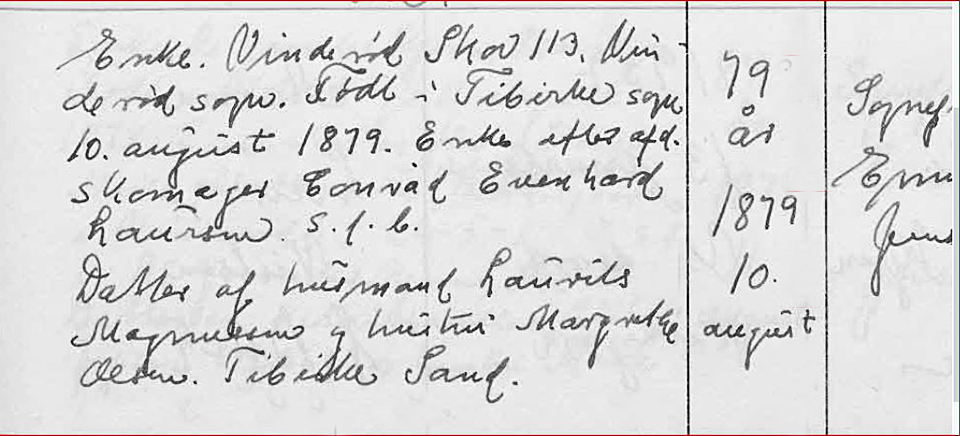 Enke. Vinderød Skov 113, Vin-
derød sogn. Født i Tibirke sogn
10. august 1879. Enke efter afd.
skomager Conrad Evenhard
Laursen. S. f. b.
Datter af husmand Laurits
Magnussen og hustru Margrethe
Olsen. Tibirke Sand.
79
år
1879
10.
august
Sognef